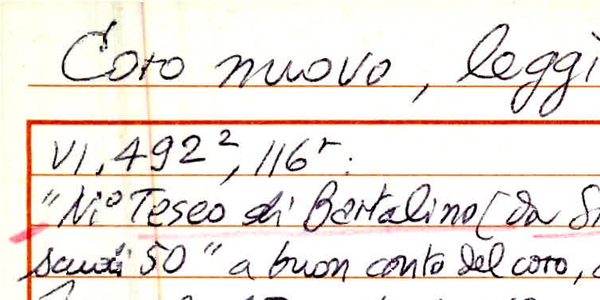 Coro nuovo, leggi
VI, 492², 116r:
"Niº Teseo di Bartalino (da
scudi 50" a buon conto del coro,